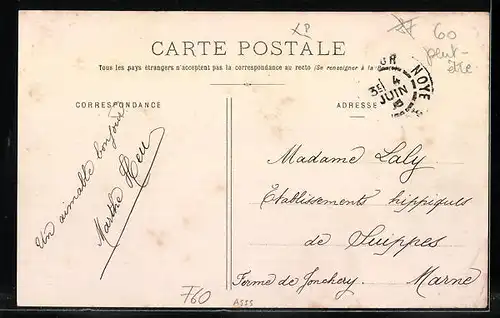 XP
60
peut-
être
CARTE POSTALE
Tous les pays étrangers n'acceptent pas la correspondance au recto (Se renseigner à la
NOYE
3E 4
JUIN
CORRESPONDANCE
ADRESSE
Un aimable bonjour
Marthe Heu
Madame Laly
Etablissements hippiques
de Suippes
Ferme de Jonchery. Marne
F60
A555